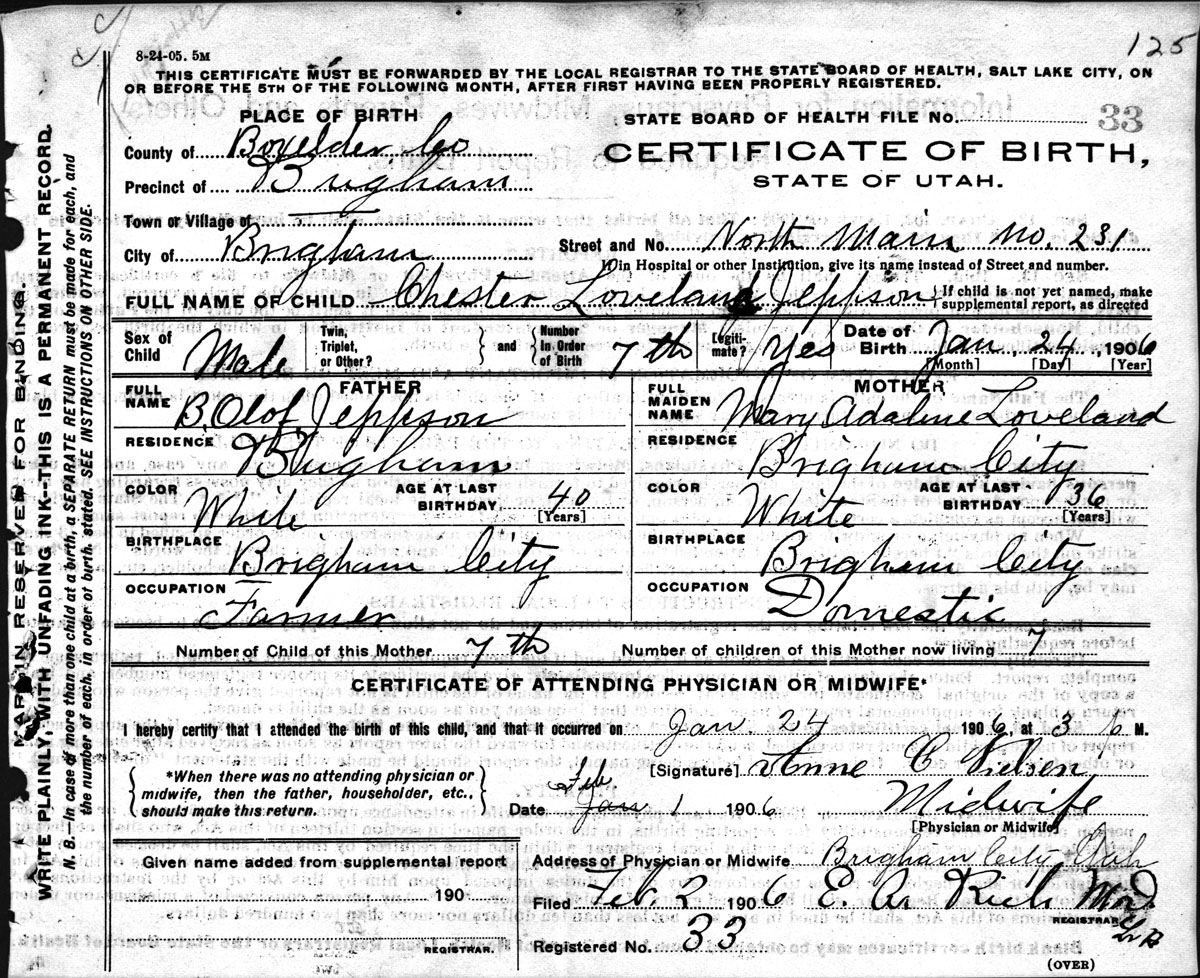 125
8-24-05. 5M
THIS CERTIFICATE MUST BE FORWARDED BY THE LOCAL REGISTRAR TO THE STATE BOARD OF HEALTH, SALT LAKE CITY, ON
OR BEFORE THE 5TH OF THE FOLLOWING MONTH, AFTER FIRST HAVING BEEN PROPERLY REGISTERED.
PLACE OF BIRTH
STATE BOARD OF HEALTH FILE No. 33
County of Boxelder Co
CERTIFICATE OF BIRTH,
STATE OF UTAH.
Precinct of Brigham
Town or Village of
City of Brigham
Street and No. North Main No. 231
In Hospital or other Institution, give its name instead of Street and number.
FULL NAME OF CHILD Chester Loveland Jeppson
If child is not yet named, make
supplemental report, as directed
Sex of Child Male
Twin, Triplet, or Other?
and Number in Order of Birth 7th
Legitimate? Yes
Date of Birth Jan. 24, 1906
[Month] [Day] [Year]
FATHER
FULL NAME B. Olof Jeppson
RESIDENCE Brigham
COLOR White
AGE AT LAST BIRTHDAY 40
[Years]
BIRTHPLACE Brigham City
OCCUPATION Farmer
MOTHER
FULL MAIDEN NAME Mary Adaline Loveland
RESIDENCE Brigham City
COLOR White
AGE AT LAST BIRTHDAY 36
[Years]
BIRTHPLACE Brigham City
OCCUPATION Domestic
Number of Child of this Mother 7th
Number of children of this Mother now living 7
CERTIFICATE OF ATTENDING PHYSICIAN OR MIDWIFE*
I hereby certify that I attended the birth of this child, and that it occurred on Jan. 24 1906, at 3 M.
*When there was no attending physician or
midwife, then the father, householder, etc.,
should make this return.
[Signature] Anne C Nielsen
Feb
Date Jan 1 1906
Midwife
[Physician or Midwife]
Given name added from supplemental report
190
REGISTRAR.
Address of Physician or Midwife Brigham City Utah
Filed Feb. 2 1906 E. A. Rich M.D.
REGISTRAR
Registered No. 33
(OVER)
MARGIN RESERVED FOR BINDING.
WRITE PLAINLY, WITH UNFADING INK--THIS IS A PERMANENT RECORD.
N. B. In case of more than one child at a birth, a SEPARATE RETURN must be made for each, and
the number of each, in order of birth, stated. SEE INSTRUCTIONS ON OTHER SIDE.